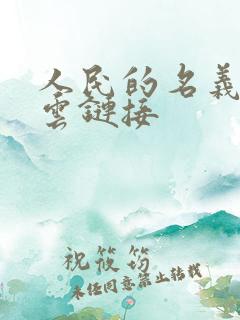 人民的名義
雲鏈接
祝筱筠
未经同意禁止转载